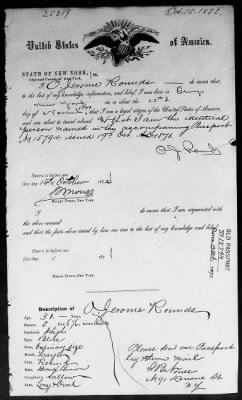 25319
Oct. 15. 1872
United States of America.
STATE OF NEW YORK,
I, O Jerome Rounds do swear that,
to the best of my knowledge, information, and belief, I was born in
in or about the 12th
day of that I am a loyal citizen of the United States of America,
and am about to travel abroad that I am the identical
person named in the accompanying Passport
No 15794 issued 19th Oct 1871
SWORN to before me
this day of October 1872
NOTARY PUBLIC, NEW YORK.
I, do swear that I am acquainted with
the above-named
and that the facts above stated by him are true to the best of my knowledge and belief.
SWORN to before me
this day of 187
NOTARY PUBLIC, NEW YORK.
OLD PASSPORT
No 15794
Description of O Jerome Rounds
Age: 31 Years
Stature: 5
Forehead: High
Eyes: Blue
Nose: Ordinary size
Mouth: Large
Chin: Round
Hair: Dark Brown
Complexion: Sallow
Face: Long Oval
Please send me Passport
by return mail
Duane St
N.Y.